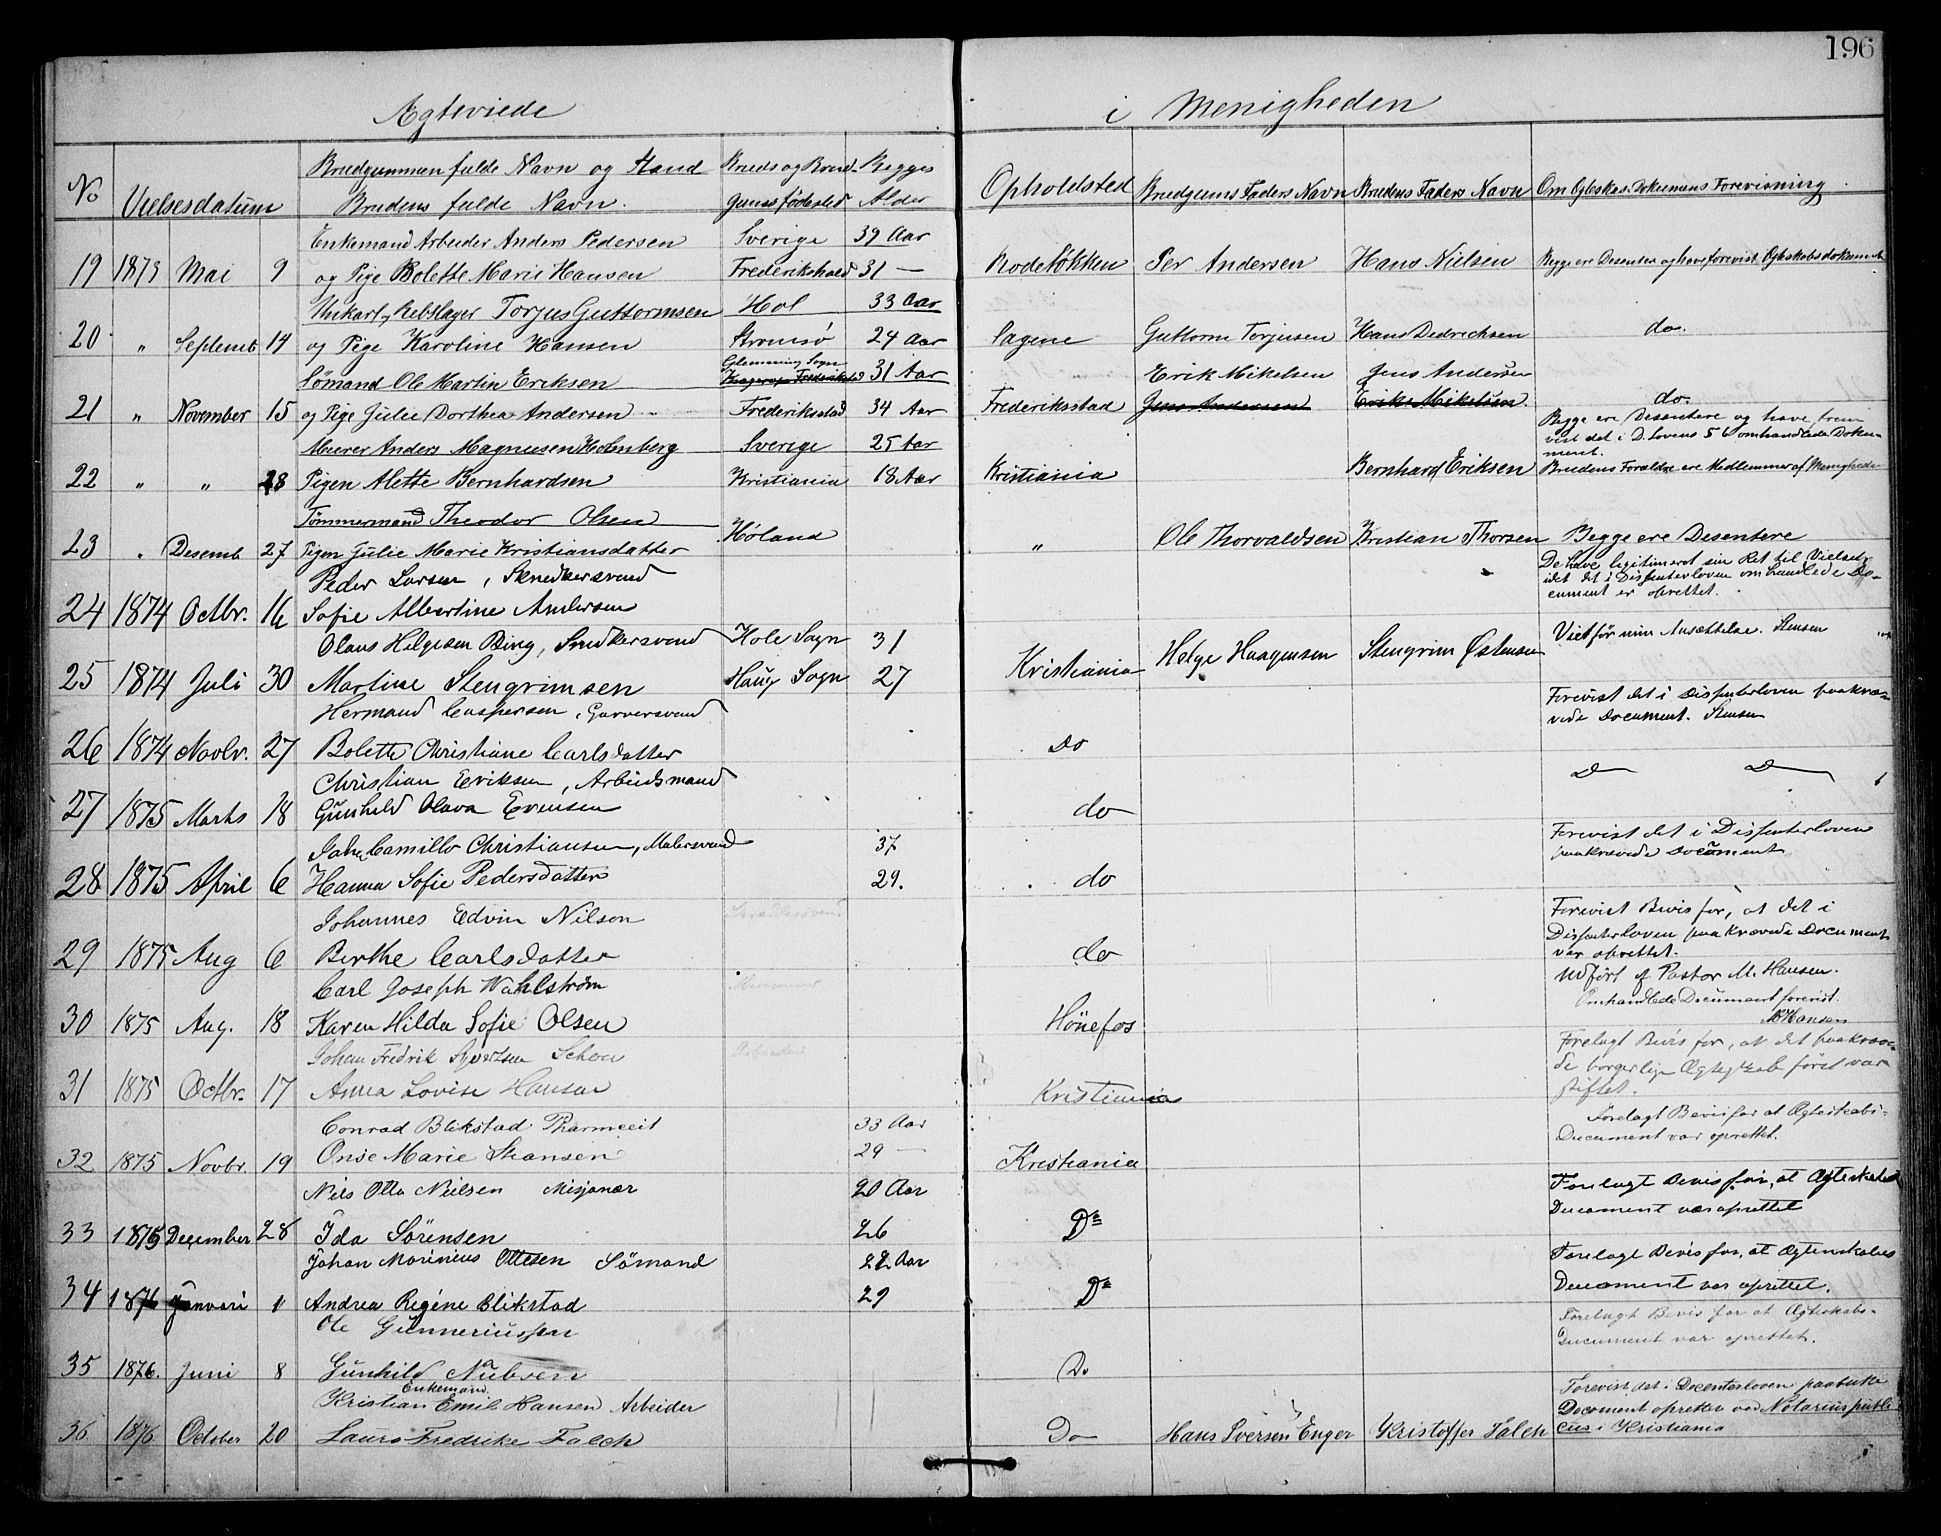 196
Ægteviede i Menigheden
No Vielsesdatum Brudgummen fulde Navn og Stand Bruds og Brud- Begges Opholdsted Brudgums Faders Navn Brudens Faders Navn Om Egtesks. Dokumens Forevisning
Brudens fulde Navn. gums fødested Alder
Enkemand Arbeider Anders Pedersen Sverige 39 Aar
19 1873 Mai 9 og Pige Bolette Marie Hansen Frederikshald 31 — Rodeløkken Per Andersen Hans Nielsen Begge ere Desenter og have forevist Egteskabsdokument
Unkarl, Rebslager Torjus Guttormsen Hol 33 Aar
20 " Septemb 14 og Pige Karoline Hansen Strømsø 24 Aar Sagene Guttorm Torjusen Hans Dedrichsen do.
Glemming Sogn
Sømand Ole Martin Eriksen 31 Aar Erik Mikelsen Jens Andersen
21 " November 15 og Pige Julie Dorthea Andersen Frederiksstad 34 Aar Frederiksstad Jens Andersen Erik Mikelsen do.
Begge ere Desentere og have frem
vist det i D. Lovens § 6 omhandlede Doku-
ment.
Murer Anders Magnusen Holmberg Sverige 25 Aar
22 " " 28 Pigen Alette Bernhardsen Kristiania 18 Aar Kristiania Bernhard Eriksen Brudens Forældre ere Medlemmer af Menigheden
Tømmermand Theodor Olsen Høland
23 " Desemb 27 Pigen Julie Marie Kristiansdatter " Ole Thorvaldsen Kristian Thorsen Begge ere Desentere
De have legitimeret sin Ret til Vielse,
idet det i Dissenterloven omhandlede Do-
cument er oprettet.
Peder Larsen, Snedkersvend
24 1874 Octbr. 16 Sofie Albertine Andersen
Olaus Helgesen Bing, Snedkersvend Hole Sogn 31 Viet før min Ansættelse. Stensen
25 1874 Juli 30 Martine Stengrimsen Haug Sogn 27 Kristiania Helge Haagensen Stengrim Østensen
Forevist det i Dissenterloven paakræ-
vede Document. Stensen
Hermand Caspersen, Garversvend
26 1874 Novbr. 27 Bolette Christiane Carlsdatter Do
Christian Eriksen, Arbeidsmand D D
27 1875 Marts 18 Gunhild Olava Evensen do
Forevist det i Dissenterloven
paakrævede Document
Johan Camillo Christiansen, Malersvend 37
28 1875 April 6 Hanna Sofie Pedersdatter 29. do
Forevist Bevis for, at det i
Dissenterloven paakrævede Document
var oprettet.
Johannes Edvin Nilson
29 1875 Aug 6 Berthe Carlsdatter do
Udført af Pastor M. Hansen.
Omhandlede Document forevist.
M Hansen
Carl Joseph Wahlstrøm
30 1875 Aug. 18 Karen Hilda Sofie Olsen Hønefos
Forelagt Bevis for, at det paakræve-
de borgerlige Ægteskab først var
stiftet.
Johan Fredrik Syvertsen Schou Arbeider
31 1875 Octbr. 17 Anna Lovise Hansen Kristiania
Forelagt Bevis for at Ægteskabs-
Document var oprettet.
Conrad Blikstad Pharmceit 33 Aar
32 1875 Novbr. 19 Onse Marie Hansen 29 — Kristiania
Nils Otto Nielsen Misjonær 20 Aar Forelagt Bevis for, at Ægteskabs
Document var oprettet
33 1875 December 28 Ida Sørensen 26 Do
Johan Marinius Ottesen Sømand 22 Aar Forelagt Bevis for, at Ægtenskabs
Document var oprettet.
34 1876 Januari 1 Andrea Regine Blikstad 29 Do
Forelagt Bevis for at Ægteskabs-
Document var oprettet.
Ole Gunneriussen
35 1876. Juni 8 Gunhild Nubsen Do
Enkemand
Kristian Emil Hansen Arbeider
Forevist det i Decenterloven paabudte
Document oprettet ved Notarius publi
cus i Kristiania
36 1876 October 20 Laura Fredrikke Falch Do Hans Iversen Enger Kristoffer Falch